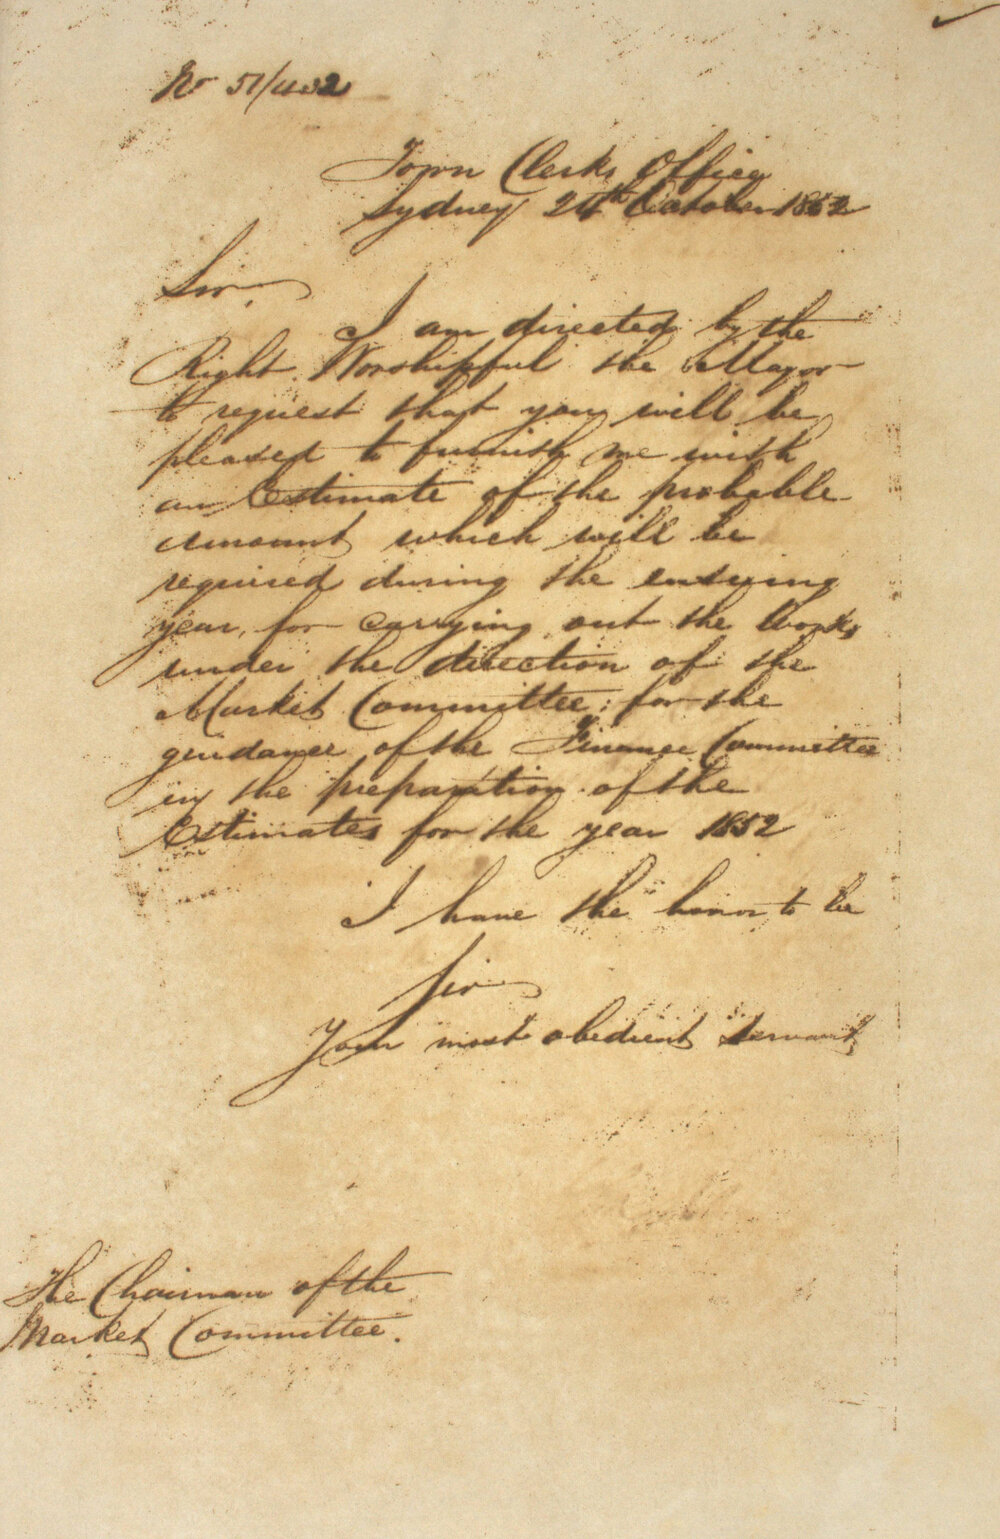 No 51/1032
Town Clerks Office
Sydney 24th October 1852
Sir,
I am directed by the
Right Worshipful the Mayor
to request that you will be
pleased to furnish me with
an Estimate of the probable
amount which will be
required during the ensuing
year, for carrying out the Works
under the direction of the
Market Committee; for the
guidance of the Finance Committee
in the preparation of the
Estimates for the year 1852
I have the honor to be
Sir
Your most obedient Servant
The Chairman of the
Market Committee.